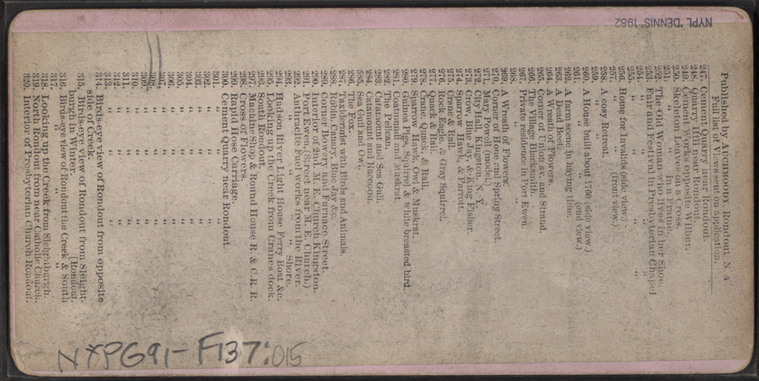 Published by D. J. AUCHMOODY, Rondout N. Y.
Full list sent on application.
247. Cement Quarry near Rondout
248. Quarry Hill near Rondout.
249. Cement Works opposite Wilbur.
250. Skeleton Leaves on a Cross.
251. " " in a Frame.
252. The Old Woman who lives in her Shoe.
253. Fair and Festival in Presbyterian Chapel
254. " " "
255. " " "
256. Home for Invalids (side view.)
257. " " (front view.)
258. A Cosy Retreat.
259. "
260. A House built about 1760 (side view.)
261. " " " (end view.)
262. A farm scene in haying time.
263. A Dead
264. A Wreath of Flowers.
265. Corner of Union av. and Strand.
266. The Village Blacksmith.
267. Private Residence in Port Ewen.
268. "
269. A Wreath of Flowers.
270. Corner of Hone and Spring Street.
271. Mary Powell (model.)
272. City Hall, Kingston, N. Y.
273. Crow, Blue Jay, & King Fisher.
274. Sparrow Hawk, & Parrott.
275. Crane & Rail.
276. Rock Eagle, & Gray Squirrel.
277. Quack & Rail.
278. Crane, Quack, & Rail.
279. Sparrow Hawk, Owl & Muskrat.
280. Guinea Pigs, Squirrel & white breasted bird.
281. Cormorant & Muskrat.
282. The Pelican.
283. Catamount and Sea Gull.
284. Catamount and Raccoon.
285. Sea Gull and Owl.
286.
287. Taxidermist with Birds and Animals.
288. Robin, Canary, Blue Jay &c.
289. Corner Bowery and Furnace Street.
290. Interior of 2nd. M. E. Church Kingston.
291. Port Ewen, (Street near M. E. Church.)
292. Anthracite Fuel works from the River.
293. " " " " Shore.
294. Hudson River Light House, Ferry Boat &c.
295. Looking up the Creek from Cranes dock.
296. South Rondout.
297. Machine Shop & Round House R. & C. K. R.
298. Cross of Flowers.
299. Rapid Hose Carriage.
300. Cement Quarry near Rondout.
301. " "
302. " "
303. " "
304. " "
305. " "
306. " "
307. " "
308. " "
309. " "
310. " "
311. " "
312. " "
313. " "
314. Birds-eye view of Rondout from opposite
side of Creek.
315. Birds-eye view of Rondout from Sleight-
burgh in Winter. [Rondout.
316. Birds-eye view of Rondout the Creek & South
317. " " "
318. Looking up the Creek from Sleightburgh.
319. North Rondout from near Catholic Church.
320. Interior of Presbyterian Church Rondout.
NYPL 'DENNIS' 1982
NYPG91-F137:015